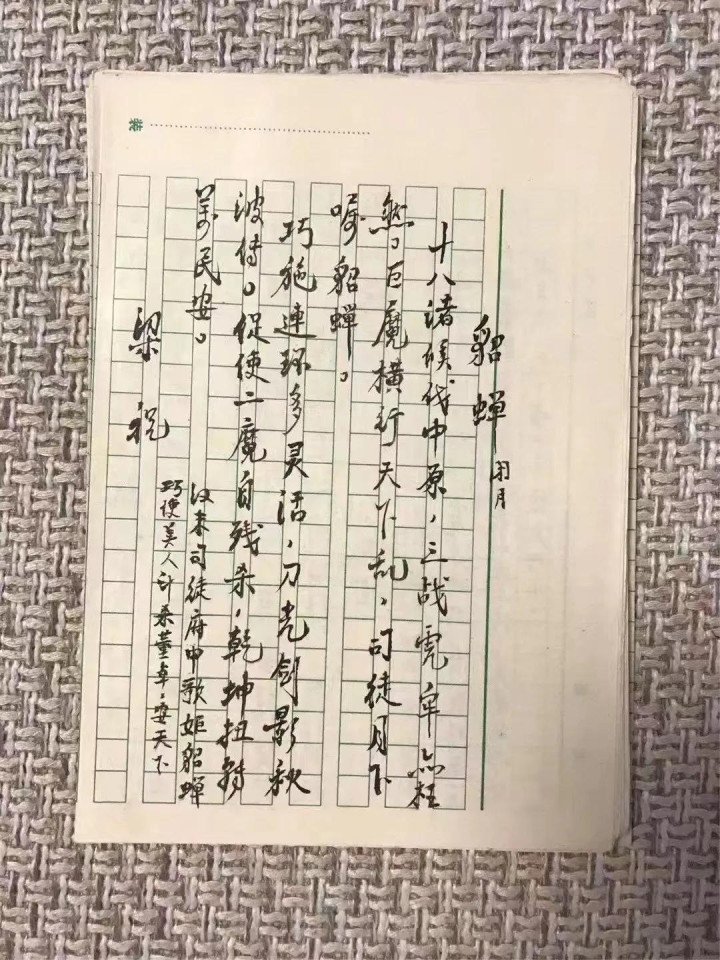 貂蝉 闭月
十八诸侯伐中原，三战虎牢亦枉
然。巨魔横行天下乱，司徒月下
嘱貂蝉。
巧施连环多灵活，刀光剑影秋
波传。促使二魔自残杀，乾坤扭转
万民安。
汉末司徒府中歌姬貂蝉
巧使美人计杀董卓，安天下
梁祝